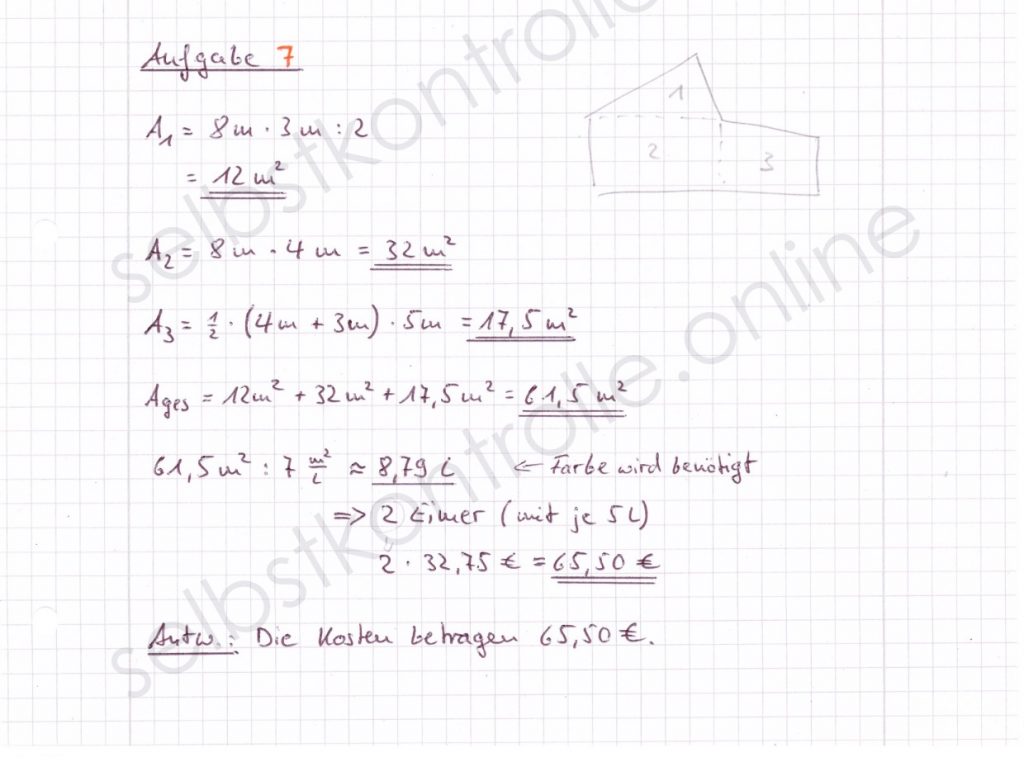 Aufgabe 7
1
2
3
A₁ = 8m · 3m : 2
= 12 m²
A₂ = 8m · 4m = 32 m²
A₃ = ½ · (4m + 3m) · 5m = 17,5 m²
Ages = 12m² + 32m² + 17,5m² = 61,5 m²
61,5m² : 7 m²/L ≈ 8,79 L ← Farbe wird benötigt
=> 2 Eimer (mit je 5L)
2 · 32,75 € = 65,50 €
Antw.: Die Kosten betragen 65,50 €.
selbstkontrolle.online
selbstkontrolle.online